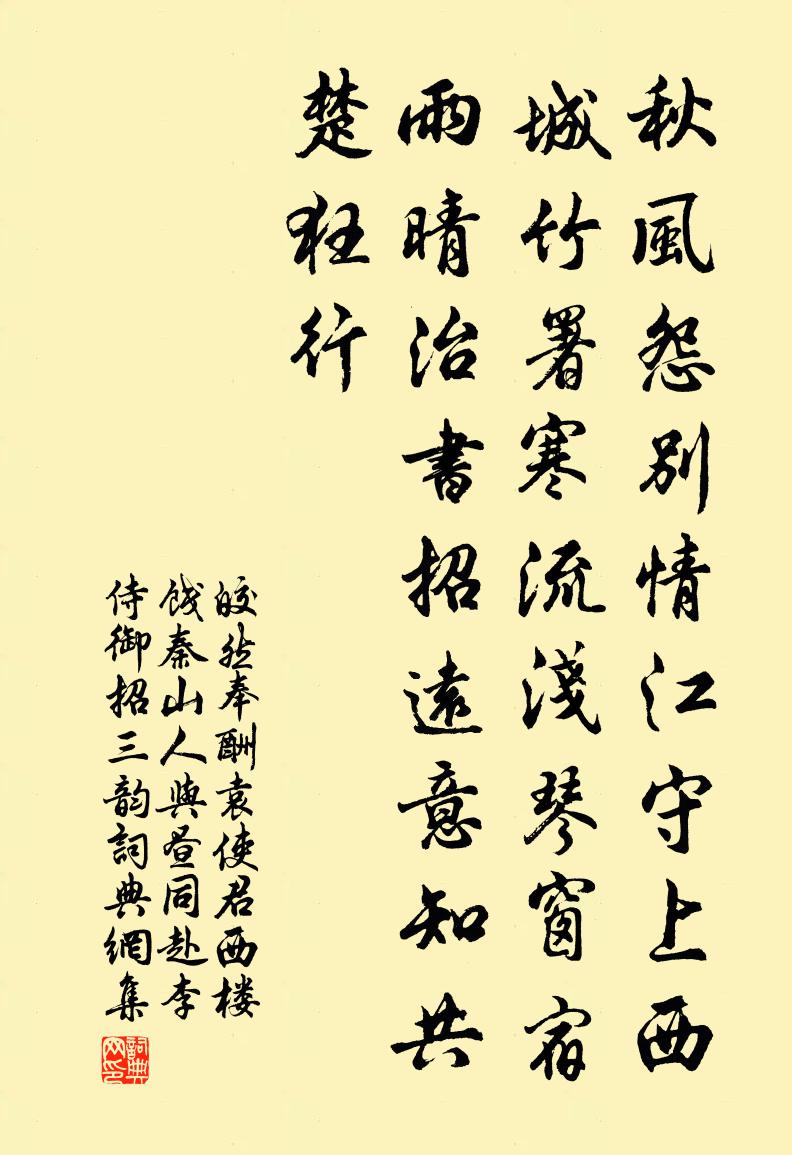 秋風怨别情江守上西
城竹署寒流淺琴窗宿
雨晴治書招遠意知共
楚狂行
皎然奉酬袁使君西楼
餞秦山人與昼同赴李
侍御招三韵詞典網集
詞典网印